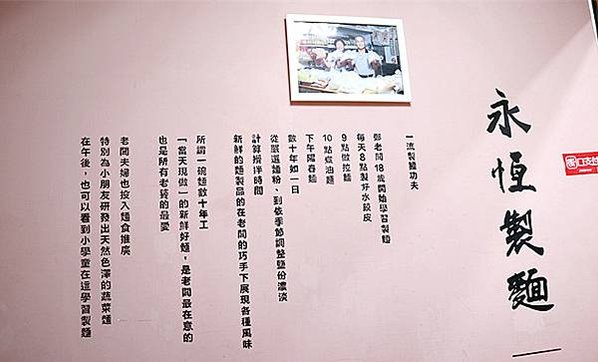 永恆製麵
一流製麵功夫
鄭老闆18歲開始學習製麵
每天8點製好水餃皮
9點做拉麵
10點做油麵
下午陽春麵
數十年如一日
從嚴選麵粉、到依季節調整鹽份濃淡
計算攪拌時間
新鮮的麵製品的在老闆的巧手下展現各種風味
所謂一碗麵數十年工
「當天現做」的新鮮好麵，是老闆最在意的
也是所有老饕的最愛
老闆夫婦也投入麵食推廣
特別為小朋友研發出天然色澤的蔬菜麵
在午後，也可以看到小學童在這學習製麵
街口支付